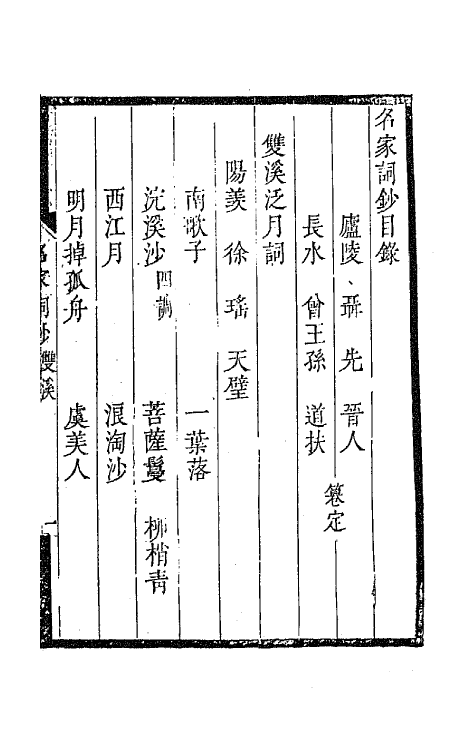 名家詞鈔目錄
廬陵 聶先 晉人
長水 曾王孫 道扶
篹定
雙溪泛月詞
陽羨 徐瑤 天璧
南歌子 一葉落
浣溪沙 四調 菩薩鬘 柳梢青
西江月 浪淘沙
明月掉孤舟 虞美人
名家詞鈔 雙溪 一